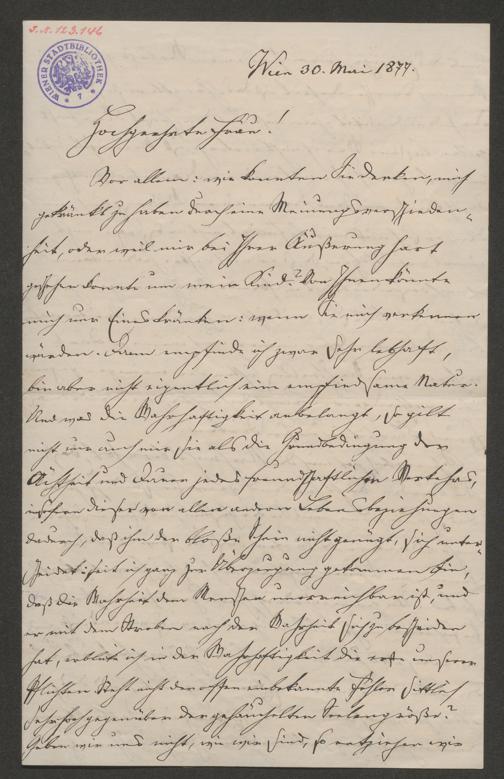 J.N. 123.146
WIENER STADTBIBLIOTHEK
* 7 *
Wien 30. Mai 1877.
Hochgeehrte Frau!
Vor allem: wie konnten Sie denken, mich
gekränkt zu haben durch eine Meinungsverschieden-
heit, oder weil mir bei Ihrer Äußerung hart
geschehen konnte um mein Kind? Von Ihnen könnte
mich nur Eines kränken: wenn Sie mich verkennen
würden. Dann empfinde ich zwar sehr lebhaft,
bin aber nicht eigentlich eine empfindsame Natur.
Und was die Wahrhaftigkeit anbelangt, so gilt
nicht nur auch mir sie als die Grundbedingung der
Ächtheit und Dauer jedes freundschaftlichen Verkehrs,
dieser von allen andern Lebensbeziehungen
dadurch, daß ihm der bloße Schein nicht genügt, sich unter-
scheidet: seit ich ganz zur Überzeugung gekommen bin,
daß die Wahrheit dem Menschen unerreichbar ist, und
er mit dem Streben nach der Wahrheit sich zu bescheiden
hat, erblicke ich in der Wahrhaftigkeit die erste unserer
Pflichten. Steht nicht der offen einbekannte Fehler sittlich
sehr hoch gegenüber der geheuchelten Seelengröße?
Geben wir uns nicht, wie wir sind, so entziehen wir